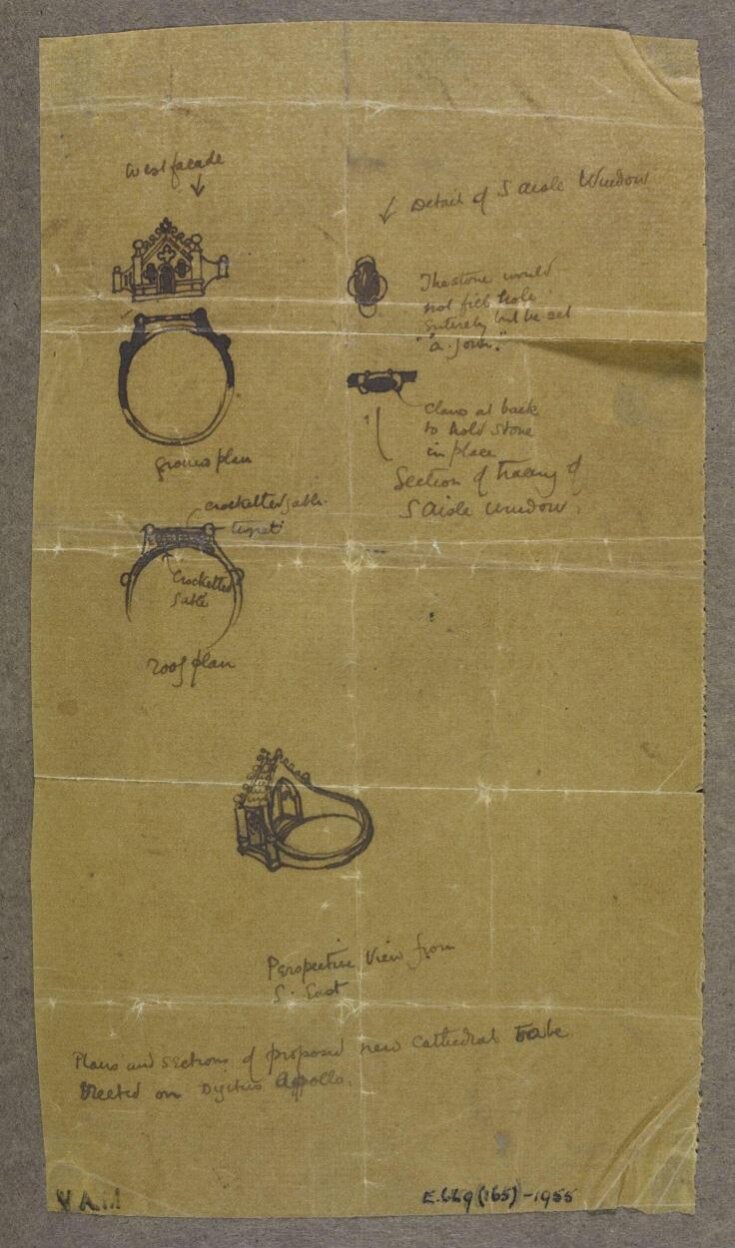 West facade
Detail of S aisle Window
The stone would
not fill hole
entirely but be set
"à jour."
Claws at back
to hold stone
in place
ground plan
Section of tracery of
S Aisle window.
crocketted gable
Crocketted
gable
roof plan
Perspective View from
S. East
Plans and sections of proposed new Cathedral to be
Erected on Digitus Apollo.
V.A.M
E.669(165)-1955